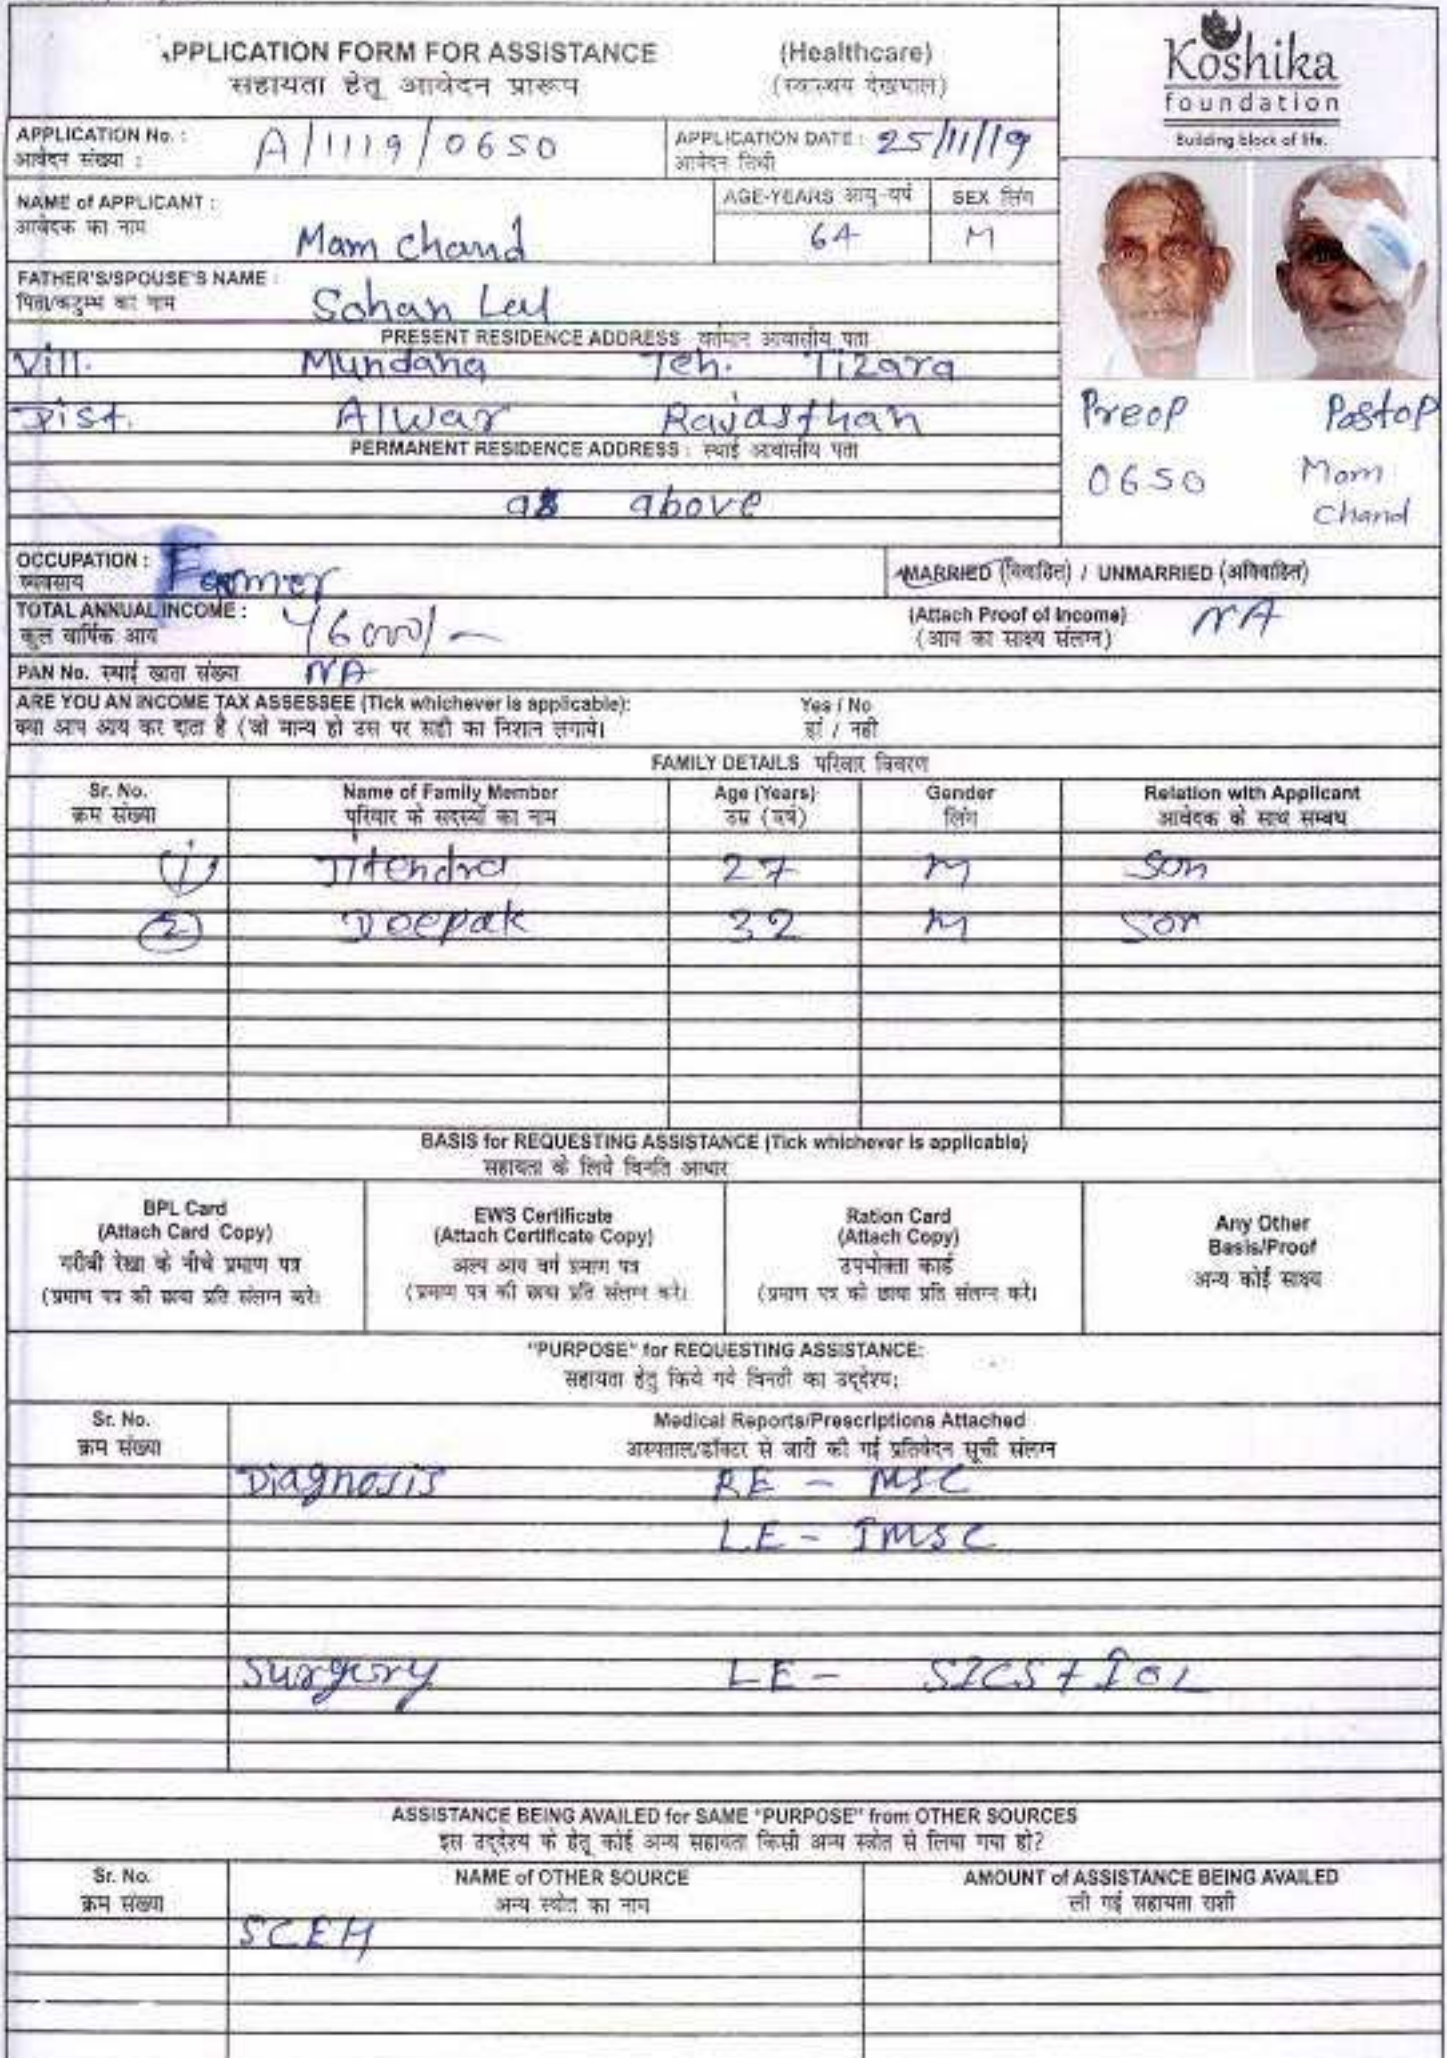 APPLICATION FORM FOR ASSISTANCE (Healthcare)
सहायता हेतू आवेदन प्रारूप (स्वास्थय देखभाल)
Koshika
foundation
Building block of life.
APPLICATION No. : A/1119/0650 APPLICATION DATE : 25/11/19
आवेदन संख्या : आवेदन तिथी
NAME of APPLICANT : Mam Chand AGE-YEARS आयु-वर्ष 64 SEX लिंग M
आवेदक का नाम
FATHER'S/SPOUSE'S NAME : Sohan Lal
पिता/कटुम्भ का नाम
PRESENT RESIDENCE ADDRESS वर्तमान आवासीय पता
Vill. Mundana Teh. Tizara
Dist. Alwar Rajasthan
PERMANENT RESIDENCE ADDRESS : स्थाई आवासीय पता
as above
Preop Postop
0650 Mam
Chand
OCCUPATION : Farmer MARRIED (विवाहित) / UNMARRIED (अविवाहित)
व्यवसाय
TOTAL ANNUAL INCOME : 46000/- (Attach Proof of Income) NA
कुल वार्षिक आय (आय का साक्ष्य संलग्न)
PAN No. स्थाई खाता संख्या NA
ARE YOU AN INCOME TAX ASSESSEE (Tick whichever is applicable): Yes / No
क्या आप आय कर दाता है (जो मान्य हो उस पर सही का निशान लगाये। हां / नही
FAMILY DETAILS परिवार विवरण
Sr. No. Name of Family Member Age (Years) Gender Relation with Applicant
क्रम संख्या परिवार के सदस्यों का नाम उम्र (वर्ष) लिंग आवेदक के साथ सम्बध
(1) Jitendra 27 M Son
(2) Deepak 32 M Son
BASIS for REQUESTING ASSISTANCE (Tick whichever is applicable)
सहायता के लिये विनति आधार
BPL Card
(Attach Card Copy)
गरीबी रेखा के नीचे प्रमाण पत्र
(प्रमाण पत्र की छाया प्रति संलग्न करे।
EWS Certificate
(Attach Certificate Copy)
अल्प आय वर्ग प्रमाण पत्र
(प्रमाण पत्र की छाया प्रति संलग्न करे।
Ration Card
(Attach Copy)
उपभोक्ता कार्ड
(प्रमाण पत्र की छाया प्रति संलग्न करे।
Any Other
Basis/Proof
अन्य कोई साक्ष्य
"PURPOSE" for REQUESTING ASSISTANCE:
सहायता हेतु किये गये विनती का उद्देश्य:
Sr. No. Medical Reports/Prescriptions Attached
क्रम संख्या अस्पताल/डॉक्टर से जारी की गई प्रतिवेदन सूची संलग्न
Diagnosis RE - MSC
LE - IMSC
Surgery LE - SICS + IOL
ASSISTANCE BEING AVAILED for SAME "PURPOSE" from OTHER SOURCES
इस उद्देश्य के हेतू कोई अन्य सहायता किसी अन्य स्त्रोत से लिया गया हो?
Sr. No. NAME of OTHER SOURCE AMOUNT of ASSISTANCE BEING AVAILED
क्रम संख्या अन्य स्त्रोत का नाम ली गई सहायता राशी
SCEH